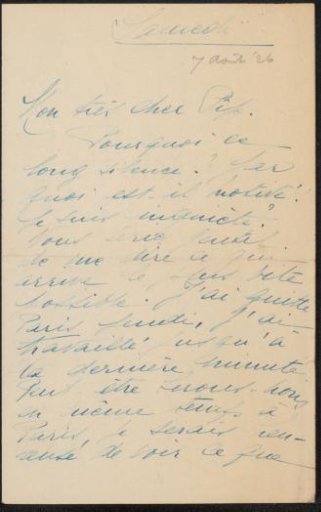 Samedi
7 août '26
Mon très cher Piet.
Pourquoi ce
long silence? Par
quoi est-il motivé?
Je suis inquiète.
Vous seriez gentil
de me dire ce qui
arrive le plus vite
possible. J'ai quitté
Paris lundi, j'ai
travaillé jusqu'à
la dernière minute.
Peut être serons-nous
en même temps à
Paris, je serais
de voir ce que